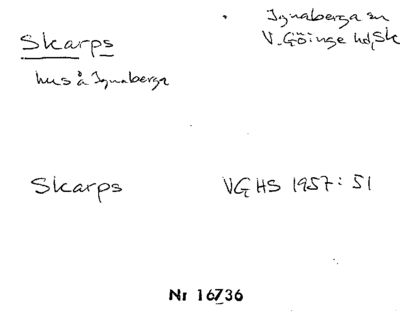 Ignaberga sn
V. Göinge hd, Sk
Skarps
hus å Ignaberga
Skarps VGHS 1957: 51
Nr 16736